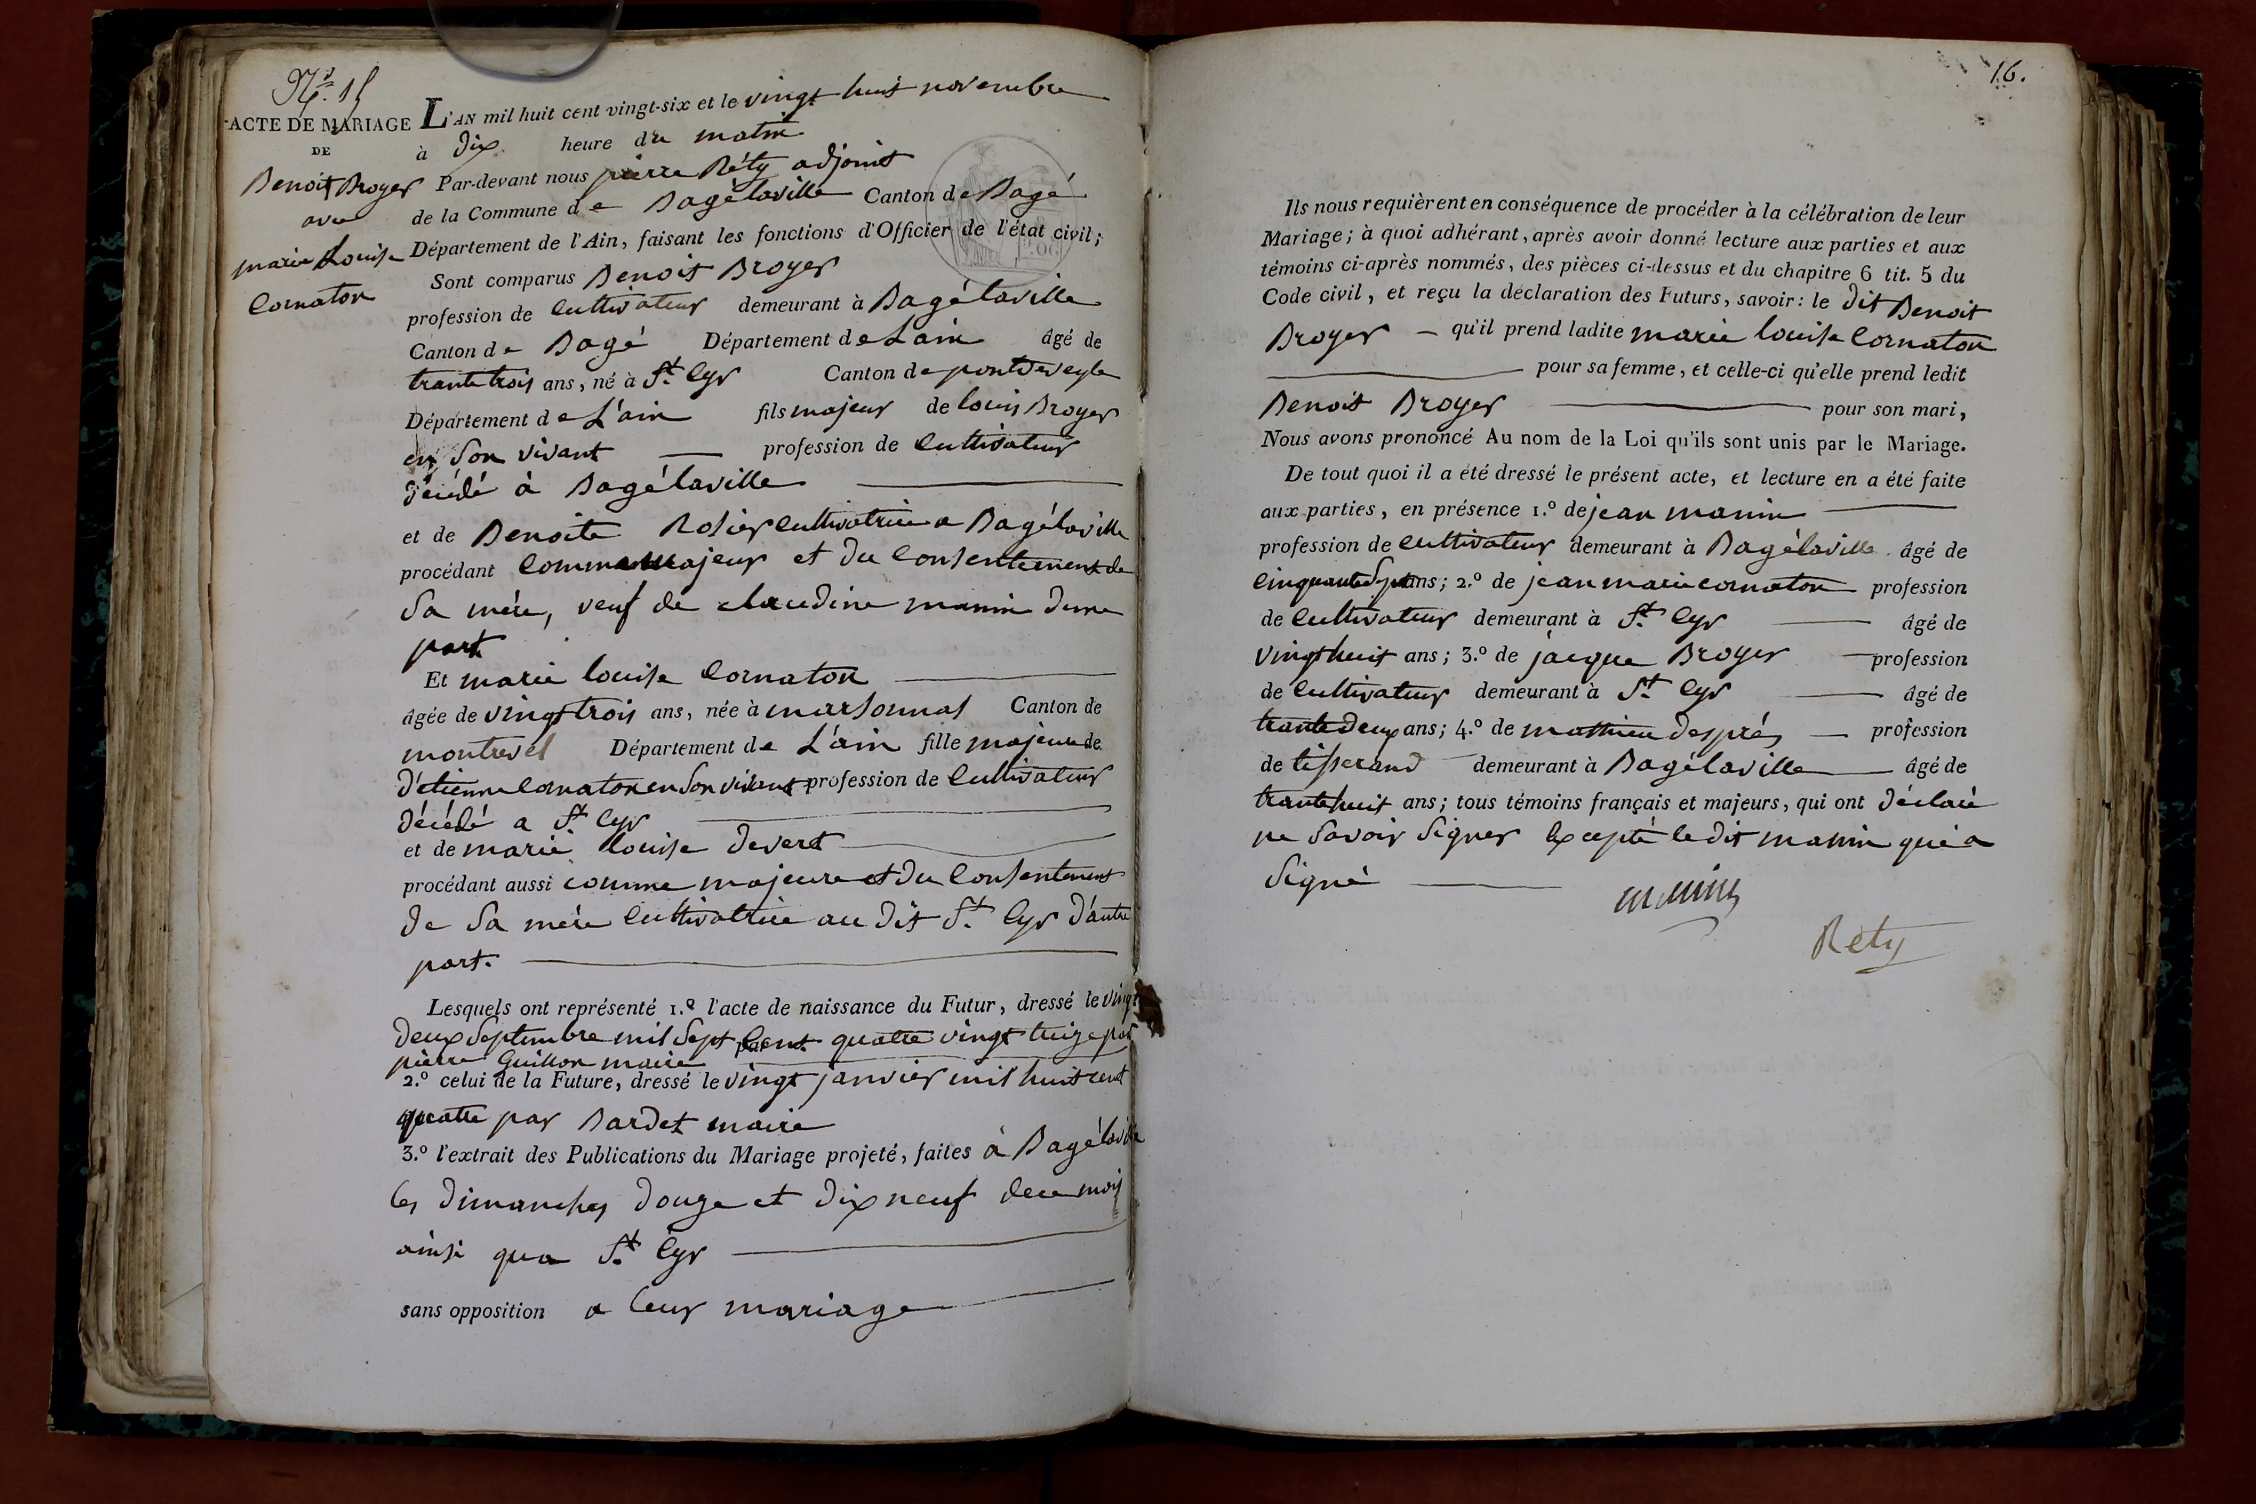 N.° 15
ACTE DE MARIAGE
DE
Benoit Broyer
avec
marie Louise
Cornaton
L'AN mil huit cent vingt-six et le vingt huit novembre
à dix heure du matin
Par-devant nous pierre Réty adjoint
de la Commune de Bagélaville Canton de Bagé
Département de l'Ain, faisant les fonctions d'Officier de l'état civil;
Sont comparus Benoit Broyer
profession de Cultivateur demeurant à Bagélaville
Canton de Bagé Département de L'ain âgé de
trante trois ans, né à St. Cyr Canton de pontdeveyle
Département de L'ain fils majeur de louis Broyer
en son vivant profession de Cultivateur
décédé à Bagélaville
et de Benoite Rosier Cultivatrice a Bagélaville
procédant Comme majeur et du Consentement de
Sa mére, veuf de claudine manin dune
part
Et marie louise Cornaton
âgée de vingt trois ans, née à marsonnas Canton de
montrevel Département de L'ain fille majeure de
d'étienne Cornaton en Son vivant profession de Cultivateur
décédé a St. Cyr
et de marie louise devert
procédant aussi comme majeure et du Consentement
de Sa mére Cultivatrice au dit St. Cyr d'autre
part.
Lesquels ont représenté 1.° l'acte de naissance du Futur, dressé le vingt
deux Septembre mil Sept Cent quatre vingt treize par
pierre Guillon maire
par
2.° celui de la Future, dressé le vingt janvier mil huit cent
quatre par Bardet maire
3.° l'extrait des Publications du Mariage projeté, faites à Bagélaville
les dimanches douze et dix neuf de ce mois
ainsi qu'a St. Cyr
sans opposition a leur mariage
16.
Ils nous requièrent en conséquence de procéder à la célébration de leur
Mariage; à quoi adhérant, après avoir donné lecture aux parties et aux
témoins ci-après nommés, des pièces ci-dessus et du chapitre 6 tit. 5 du
Code civil, et reçu la déclaration des Futurs, savoir: le dit Benoit
Broyer qu'il prend ladite marie louise Cornaton
pour sa femme, et celle-ci qu'elle prend ledit
Benoit Broyer pour son mari,
Nous avons prononcé Au nom de la Loi qu'ils sont unis par le Mariage.
De tout quoi il a été dressé le présent acte, et lecture en a été faite
aux parties, en présence 1.° de jean manin
profession de Cultivateur demeurant à Bagélaville âgé de
Cinquante Sept ans; 2.° de jean marie cornaton profession
de Cultivateur demeurant à St. Cyr âgé de
vingt huit ans; 3.° de jacque Broyer profession
de Cultivateur demeurant à St. Cyr âgé de
trante deux ans; 4.° de mathieu després profession
de tisserand demeurant à Bagélaville âgé de
trante huit ans; tous témoins français et majeurs, qui ont déclaré
ne Savoir Signer Excepté le dit manin qui a
Signé
manin
Réty